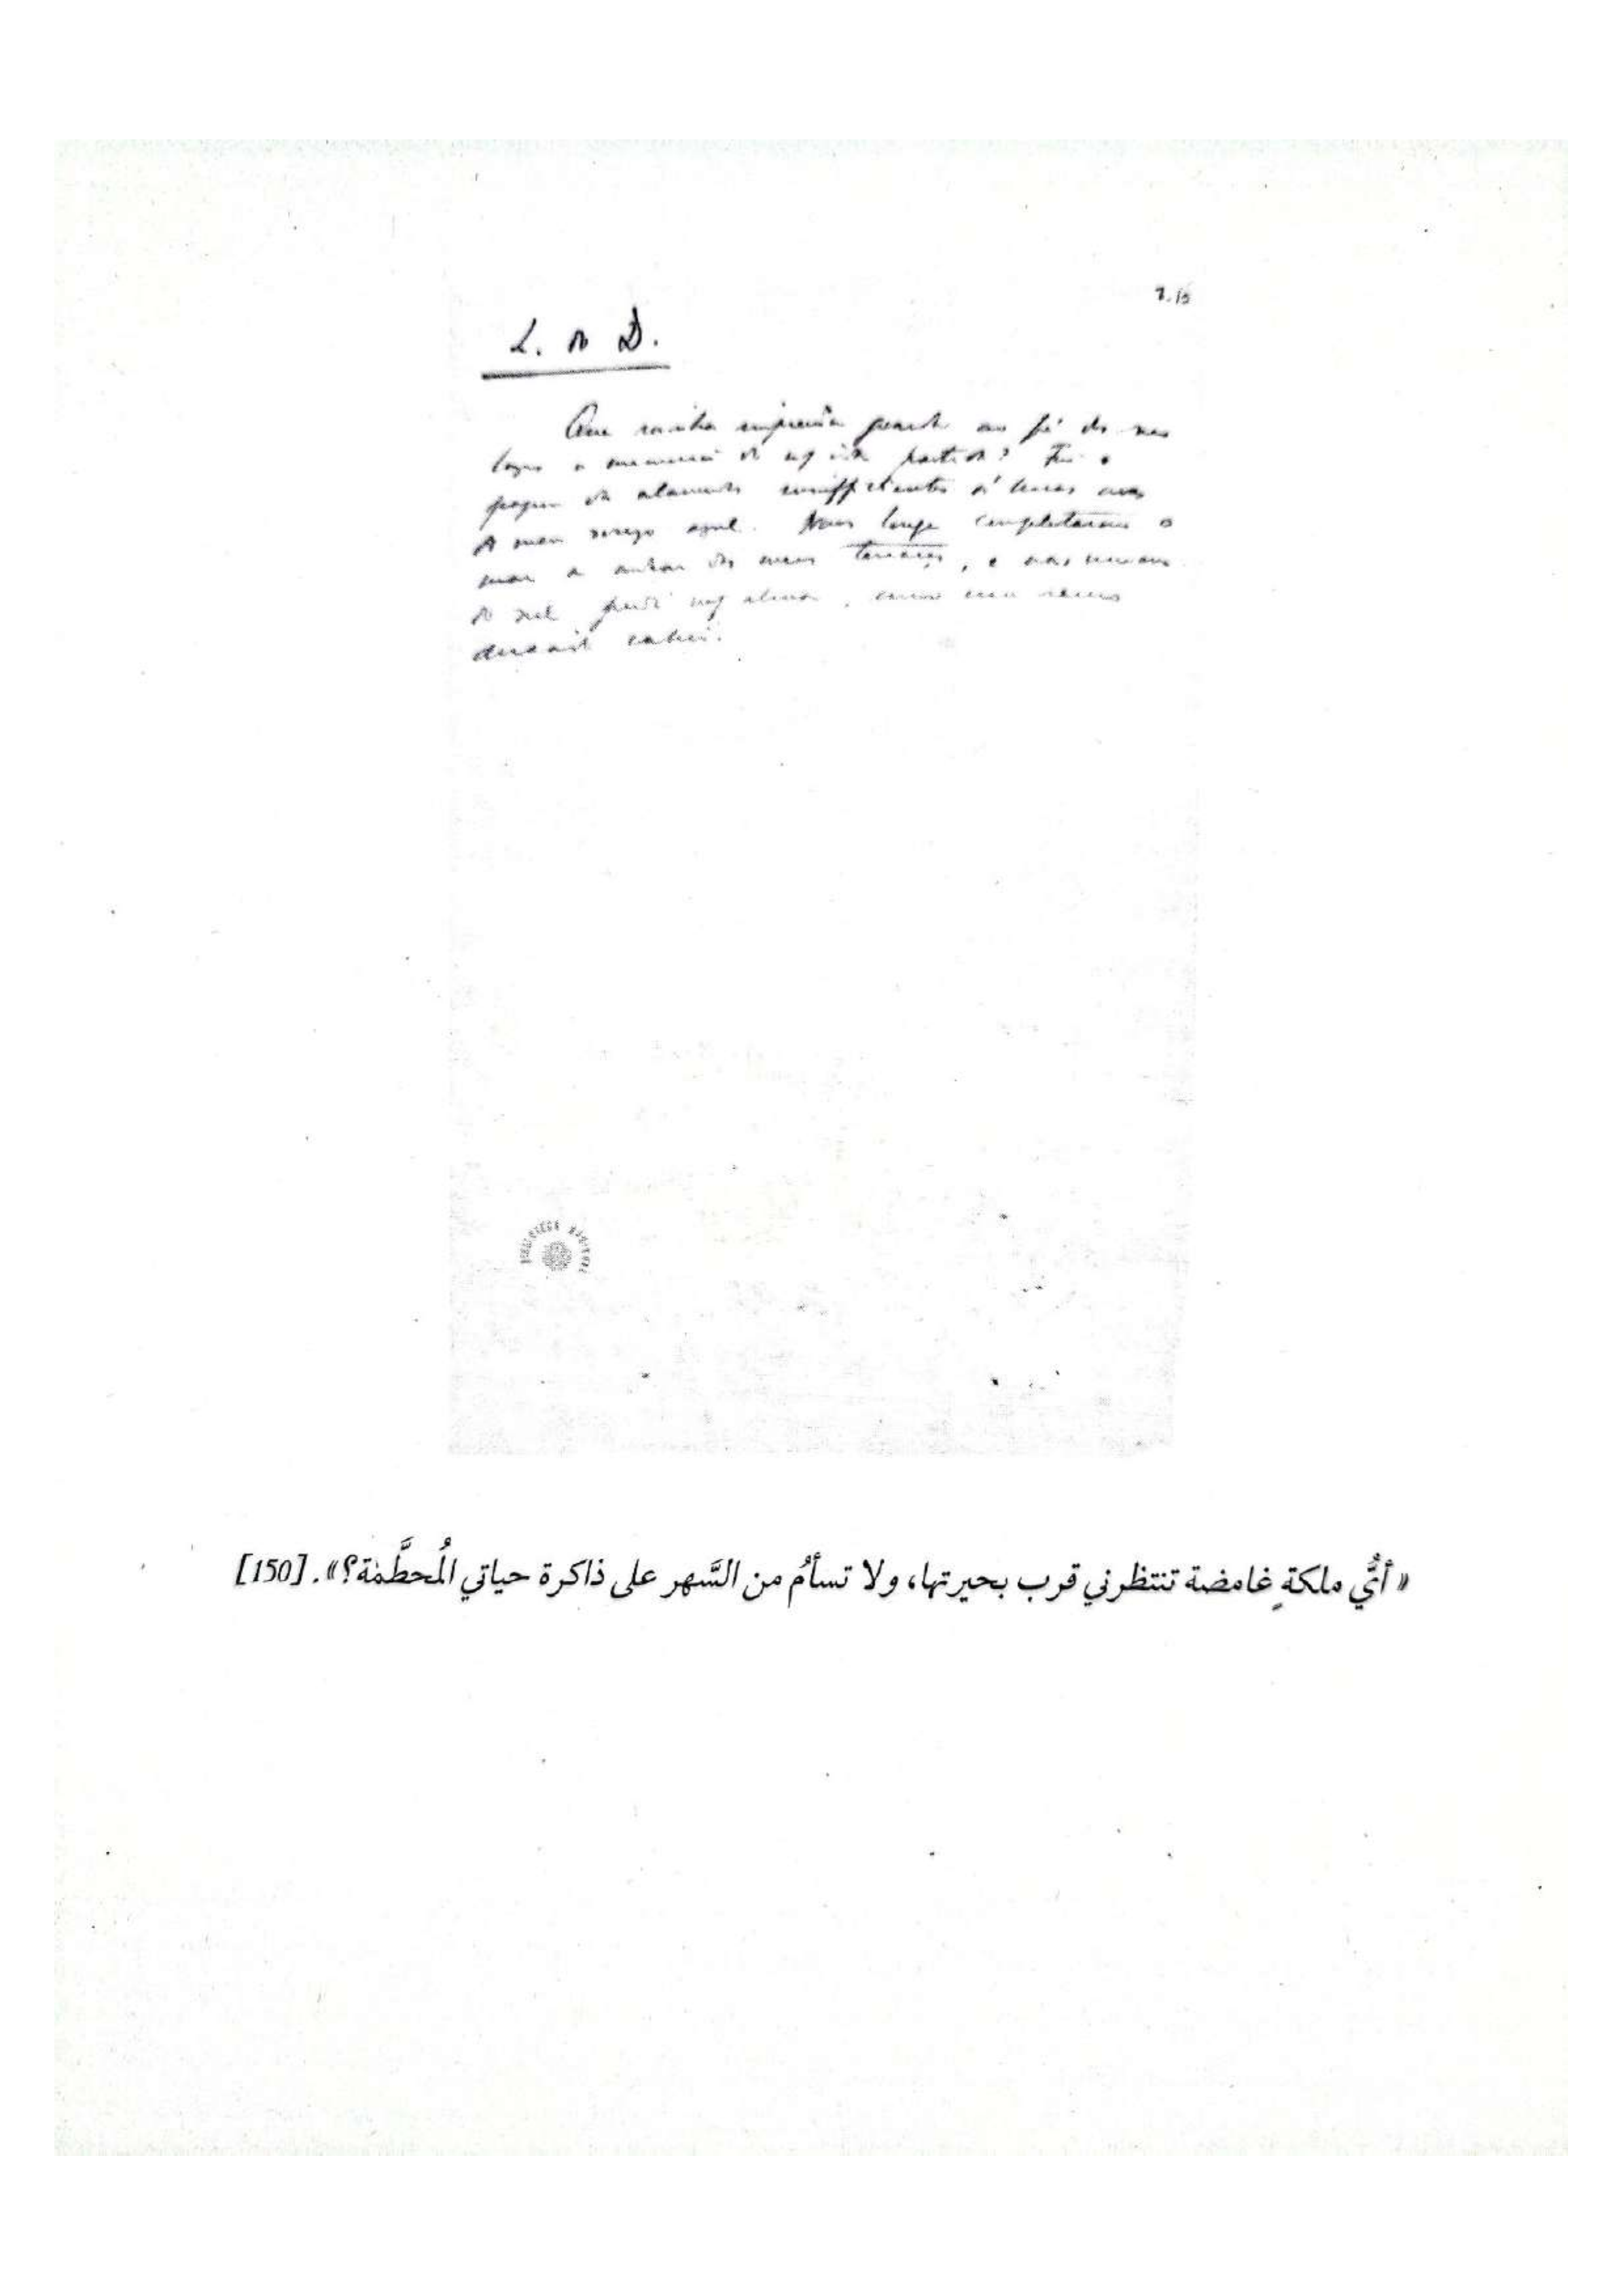 L. do D.
Que rainha imprecisa guarda ao pé dos seus
lagos a memoria da vida partida? Fui o
pagem de alamedas insufficientes ás horas aves
do meu socego azul. Naus longe completaram o
mar a ondear dos meus terraços, e nas nuvens
do sul perdi alma, como um remo
deixado cahir.
BIBLIOTECA NACIONAL
«أيُّ ملكةٍ غامضة تنتظرني قرب بحيرتها، ولا تسأمُ من السَّهر على ذاكرة حياتي المُحطَّمة؟». [150]